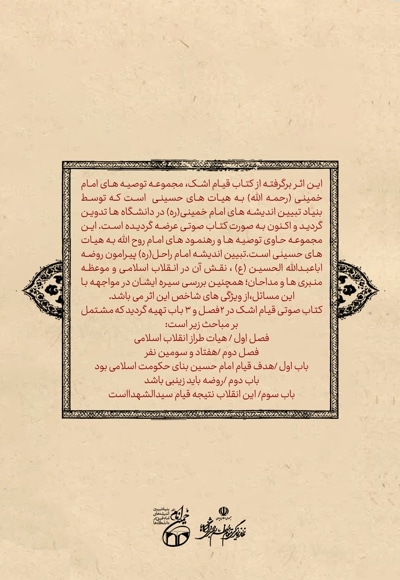 این اثر برگرفته از کتاب قیام اشک، مجموعه توصیه های امام
خمینی (رحمه الله) به هیات های حسینی است که توسط
بنیاد تبیین اندیشه های امام خمینی(ره) در دانشگاه ها تدوین
گردید و اکنون به صورت کتاب صوتی عرضه گردیده است. این
مجموعه حاوی توصیه ها و رهنمود های امام روح الله به هیات
های حسینی است.تبیین اندیشه امام راحل(ره) پیرامون روضه
اباعبدالله الحسین (ع) ، نقش آن در انقلاب اسلامی و موعظه
منبری ها و مداحان؛ همچنین بررسی سیره ایشان در مواجهه با
این مسائل،از ویژگی های شاخص این اثر می باشد.
کتاب صوتی قیام اشک در ۲فصل و ۳ باب تهیه گردید که مشتمل
بر مباحث زیر است:
فصل اول / هیات طراز انقلاب اسلامی
فصل دوم /هفتاد و سومین نفر
باب اول /هدف قیام امام حسین بنای حکومت اسلامی بود
باب دوم /روضه باید زینبی باشد
باب سوم/ این انقلاب نتیجه قیام سیدالشهدااست